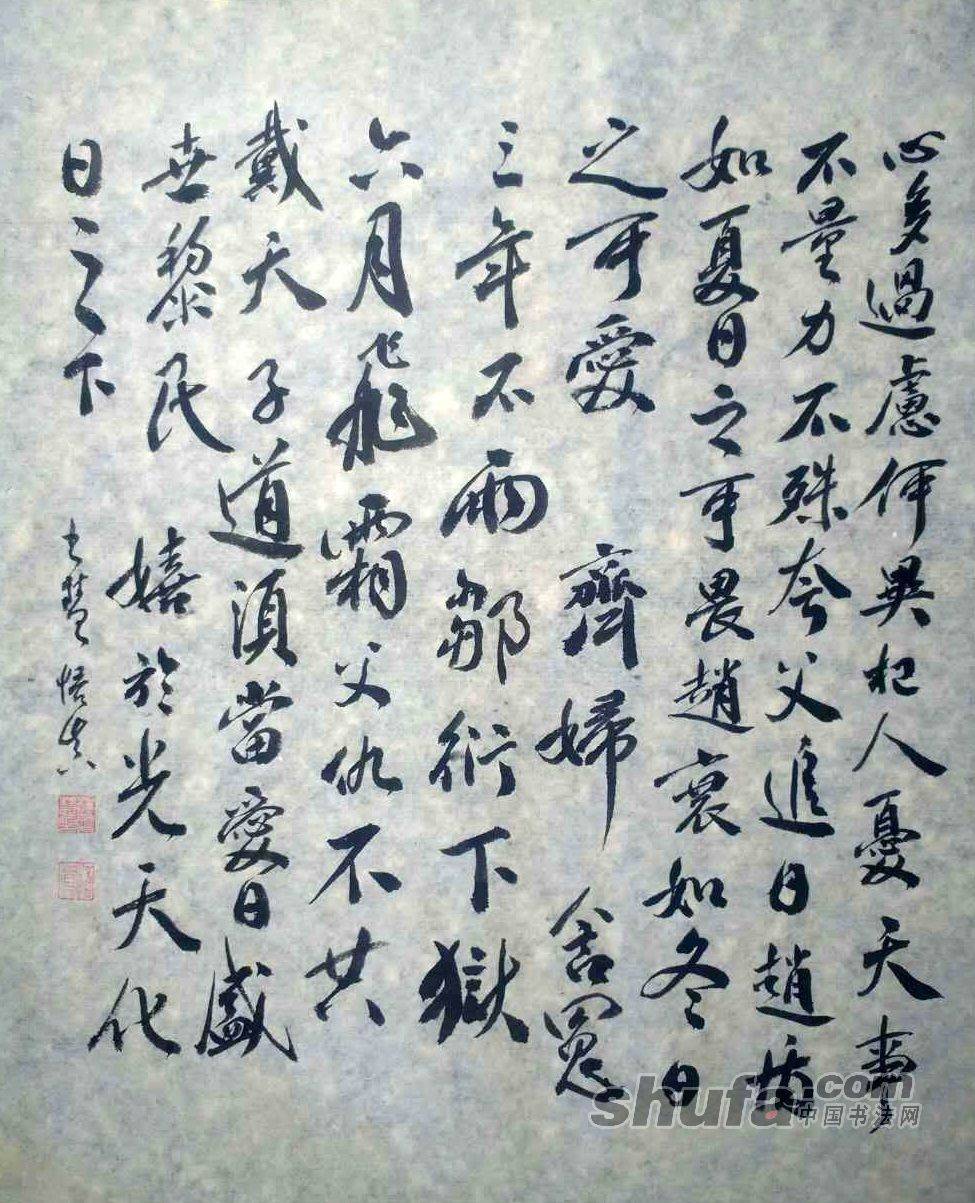 心多過慮何異杞人憂天事
不量力不殊夸父追日趙盾
如夏日之可畏趙衰如冬日
之可愛齊婦含冤
三年不雨鄒衍下獄
六月飛霜父仇不共
戴天子道須當愛日盛
世黎民嬉於光天化
日之下
悟真
shufa.com
中国书法网